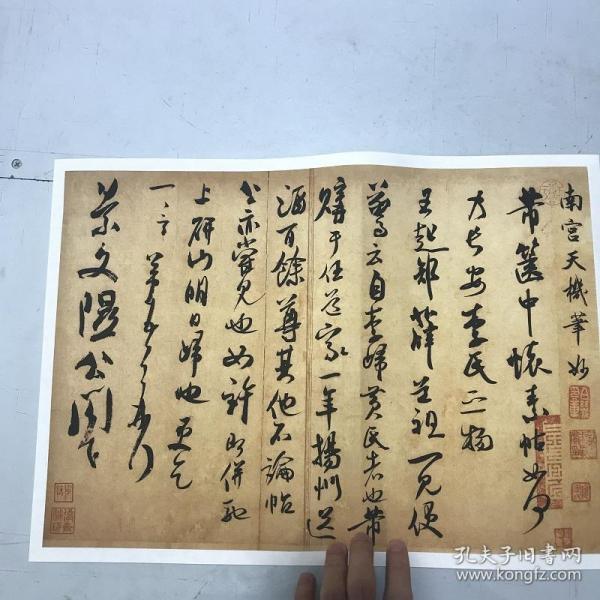 南宮天機筆妙
芾篋中懷素帖如何
乃長安李氏之物
王起部薛道祖一見便
驚云自李歸黃氏者也芾
購于任道家一年揚州送
酒百餘尊其他不論帖
公亦嘗見也如許即併馳
上研山明日歸也更乞
一言芾頓首再拜
景文隰公閣下
孔夫子旧书网
www.kongfz.com